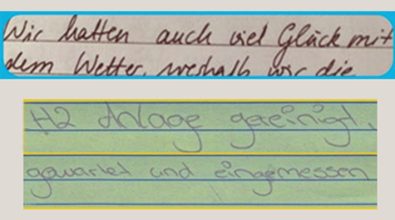 Wir hatten auch viel Glück mit
dem Wetter, weshalb wir die
H2 Anlage gereinigt,
gewartet und eingemessen